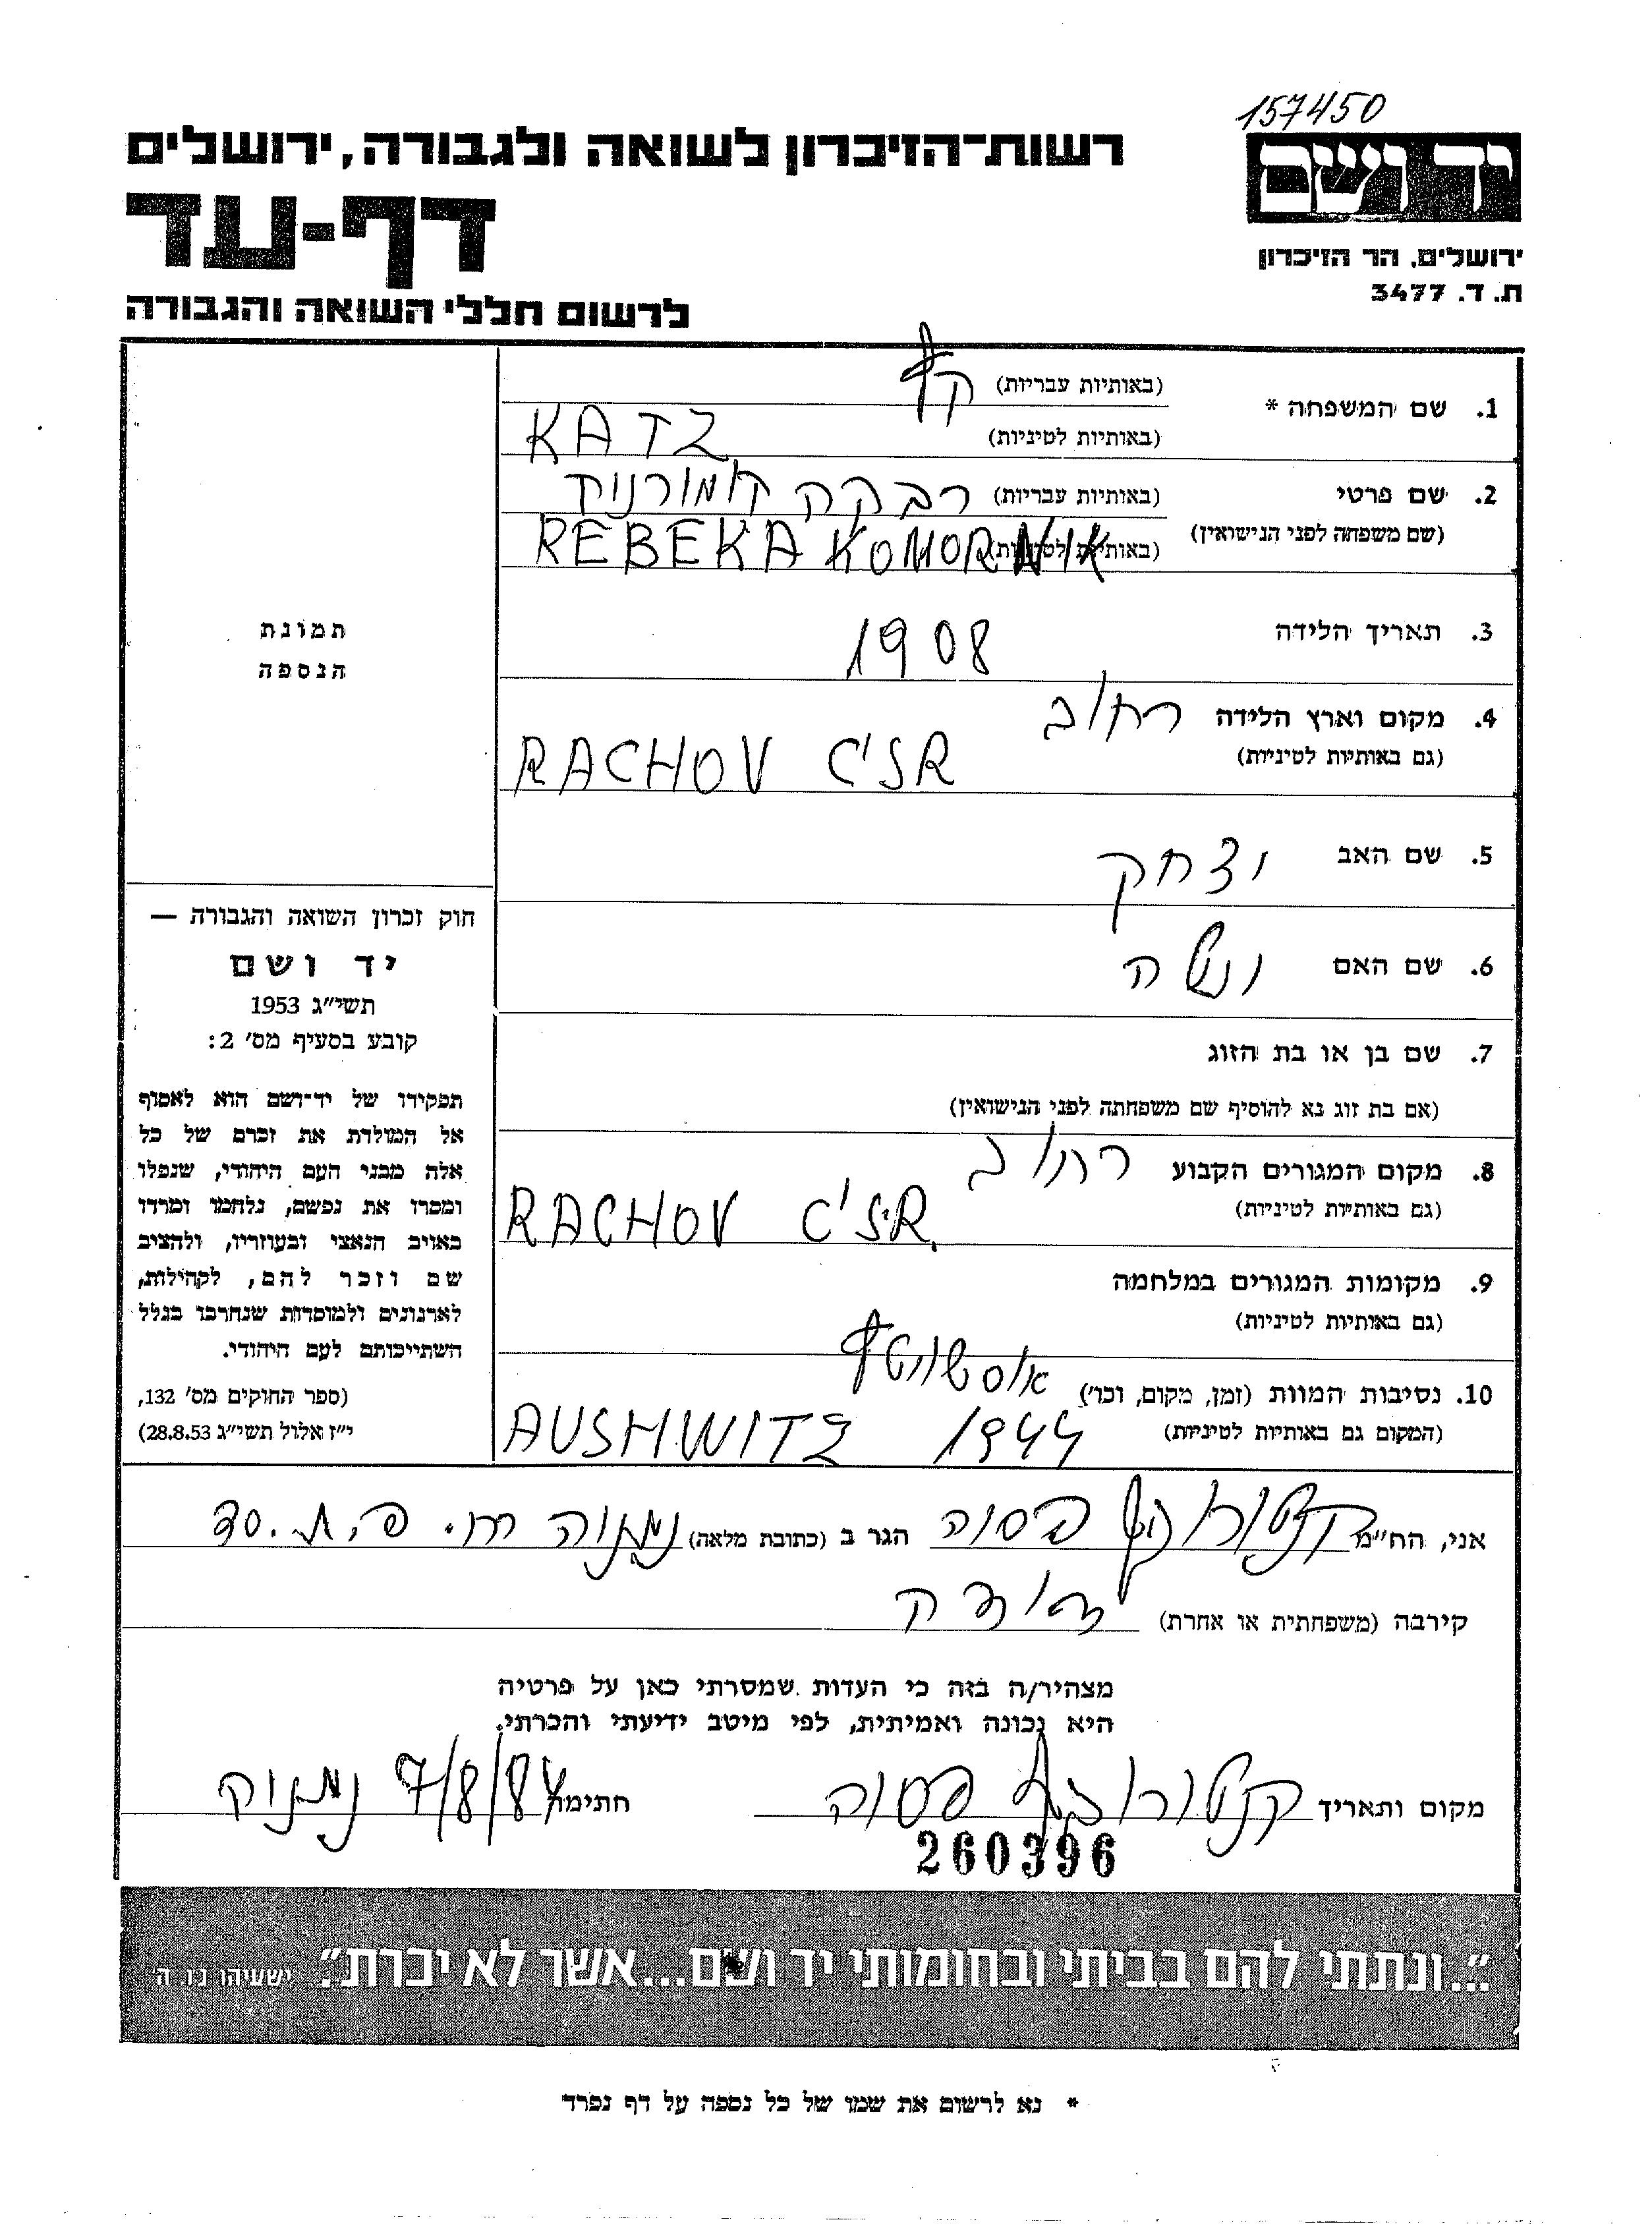 157450
יד ושם
ירושלים, הר הזיכרון
ת. ד. 3477
רשות־הזיכרון לשואה ולגבורה, ירושלים
דף-עד
לרשום חללי השואה והגבורה
1. שם המשפחה * (באותיות עבריות) קץ
(באותיות לטיניות) KATZ
2. שם פרטי (באותיות עבריות) רבקה קומורניק
(שם משפחה לפני הנישואין) (באותיות לטיניות) REBEKA KOMORNIK
3. תאריך הלידה 1908
4. מקום וארץ הלידה רחוב
(גם באותיות לטיניות) RACHOV C'SR
5. שם האב יצחק
6. שם האם
7. שם בן או בת הזוג
(אם בת זוג נא להוסיף שם משפחתה לפני הנישואין)
8. מקום המגורים הקבוע רחוב
(גם באותיות לטיניות) RACHOV C'S.R.
9. מקומות המגורים במלחמה
(גם באותיות לטיניות)
10. נסיבות המוות (זמן, מקום, וכו') אוסשויטץ
(המקום גם באותיות לטיניות) AUSHWITZ 1944
תמונת
הנספה
חוק זכרון השואה והגבורה —
יד ושם
תשי"ג 1953
קובע בסעיף מס' 2:
תפקידו של יד־ושם הוא לאסוף
אל המולדת את זכרם של כל
אלה מבני העם היהודי, שנפלו
ומסרו את נפשם, נלחמו ומרדו
באויב הנאצי ובעוזריו, ולהציב
שם וזכר להם, לקהילות,
לארגונים ולמוסדות שנחרבו בגלל
השתייכותם לעם היהודי.
(ספר החוקים מס' 132,
י"ז אלול תשי"ג 28.8.53)
אני, הח"מ הגר ב (כתובת מלאה) נתניה
קירבה (משפחתית או אחרת)
מצהיר/ה בזה כי העדות שמסרתי כאן על פרטיה
היא נכונה ואמיתית, לפי מיטב ידיעתי והכרתי.
מקום ותאריך חתימה 7/8/84
260396
"...ונתתי להם בביתי ובחומותי יד ושם...אשר לא יכרת". ישעיהו נו ה'
* נא לרשום את שמו של כל נספה על דף נפרד